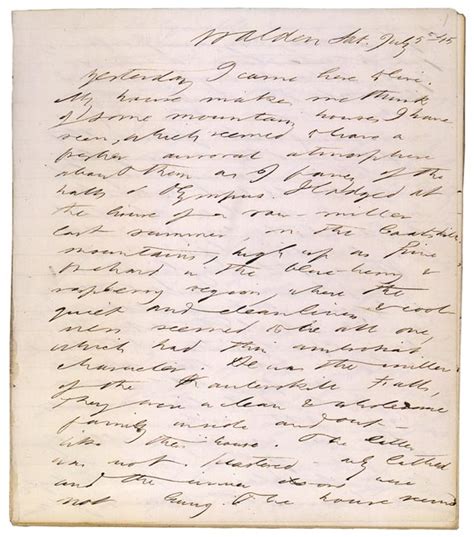 Walden Sat. July 5th 45
Yesterday I came here to live.
My house makes me think
of some mountain houses I have
seen, which seemed to have a
fresher auroral atmosphere
about them as I fancy of the
halls of Olympus. I lodged at
the house of a saw-miller
last summer on the Caatskill
mountains, high up as Pine
Orchard in the blue-berry &
raspberry region, where the
quiet and cleanliness & cool-
ness seemed to be all one,
which had this ambrosial
character. He was the miller
of the Kaaterskill Falls,
They were a clean & wholesome
family inside and out—
like their house. The latter
was not plastered—only lathed
and the inner doors were
not hung. The house seemed